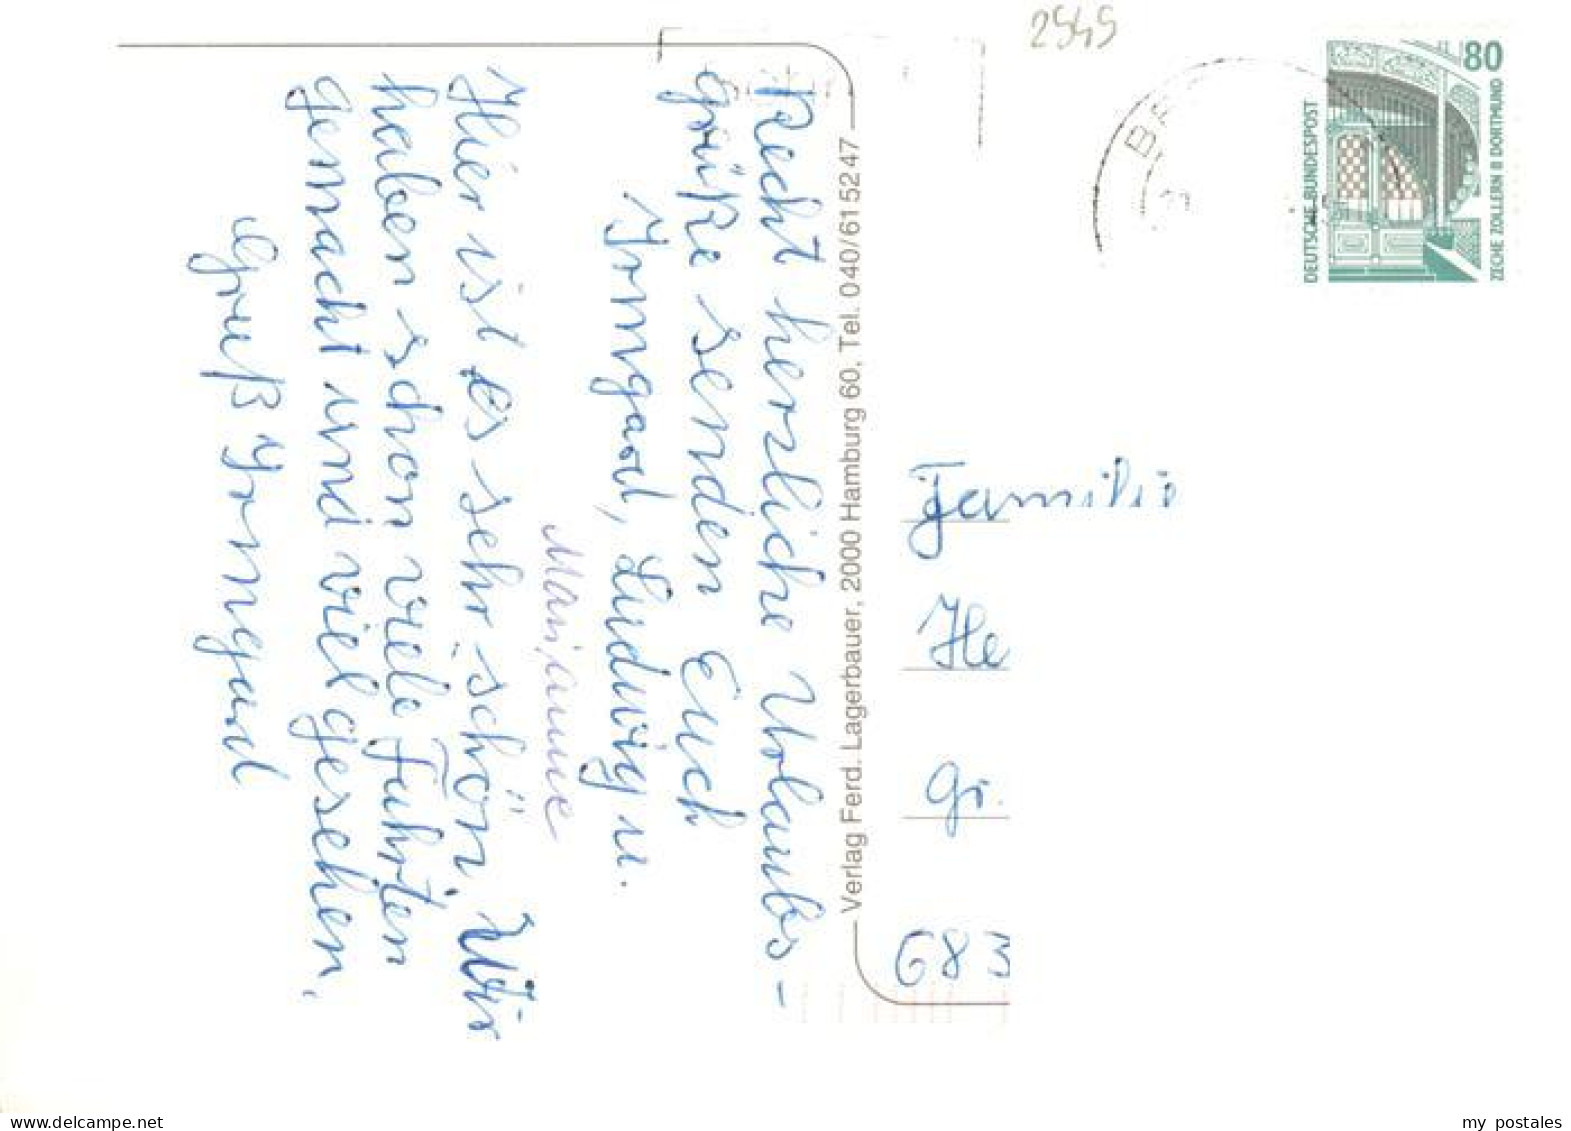 2545
80
DEUTSCHE BUNDESPOST
ZECHE ZOLLERN II DORTMUND
Recht herzliche Urlaubs-
grüße senden Euch
Irmgard, Ludwig u.
Marianne
Hier ist es sehr schön. Wir
haben schon viele Fahrten
gemacht und viel gesehen.
Gruß Irmgard
Verlag Ferd. Lagerbauer, 2000 Hamburg 60, Tel. 040/615247
Familie
He
Gr.
68
my postales